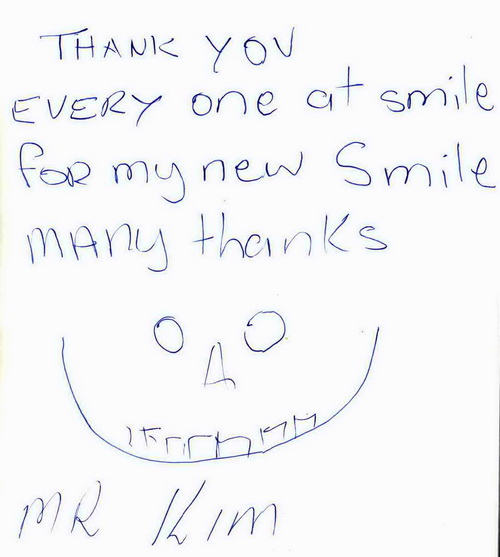 THANK YOU
EVERY one at smile
foR my new Smile
mANy thanks
MR Kim